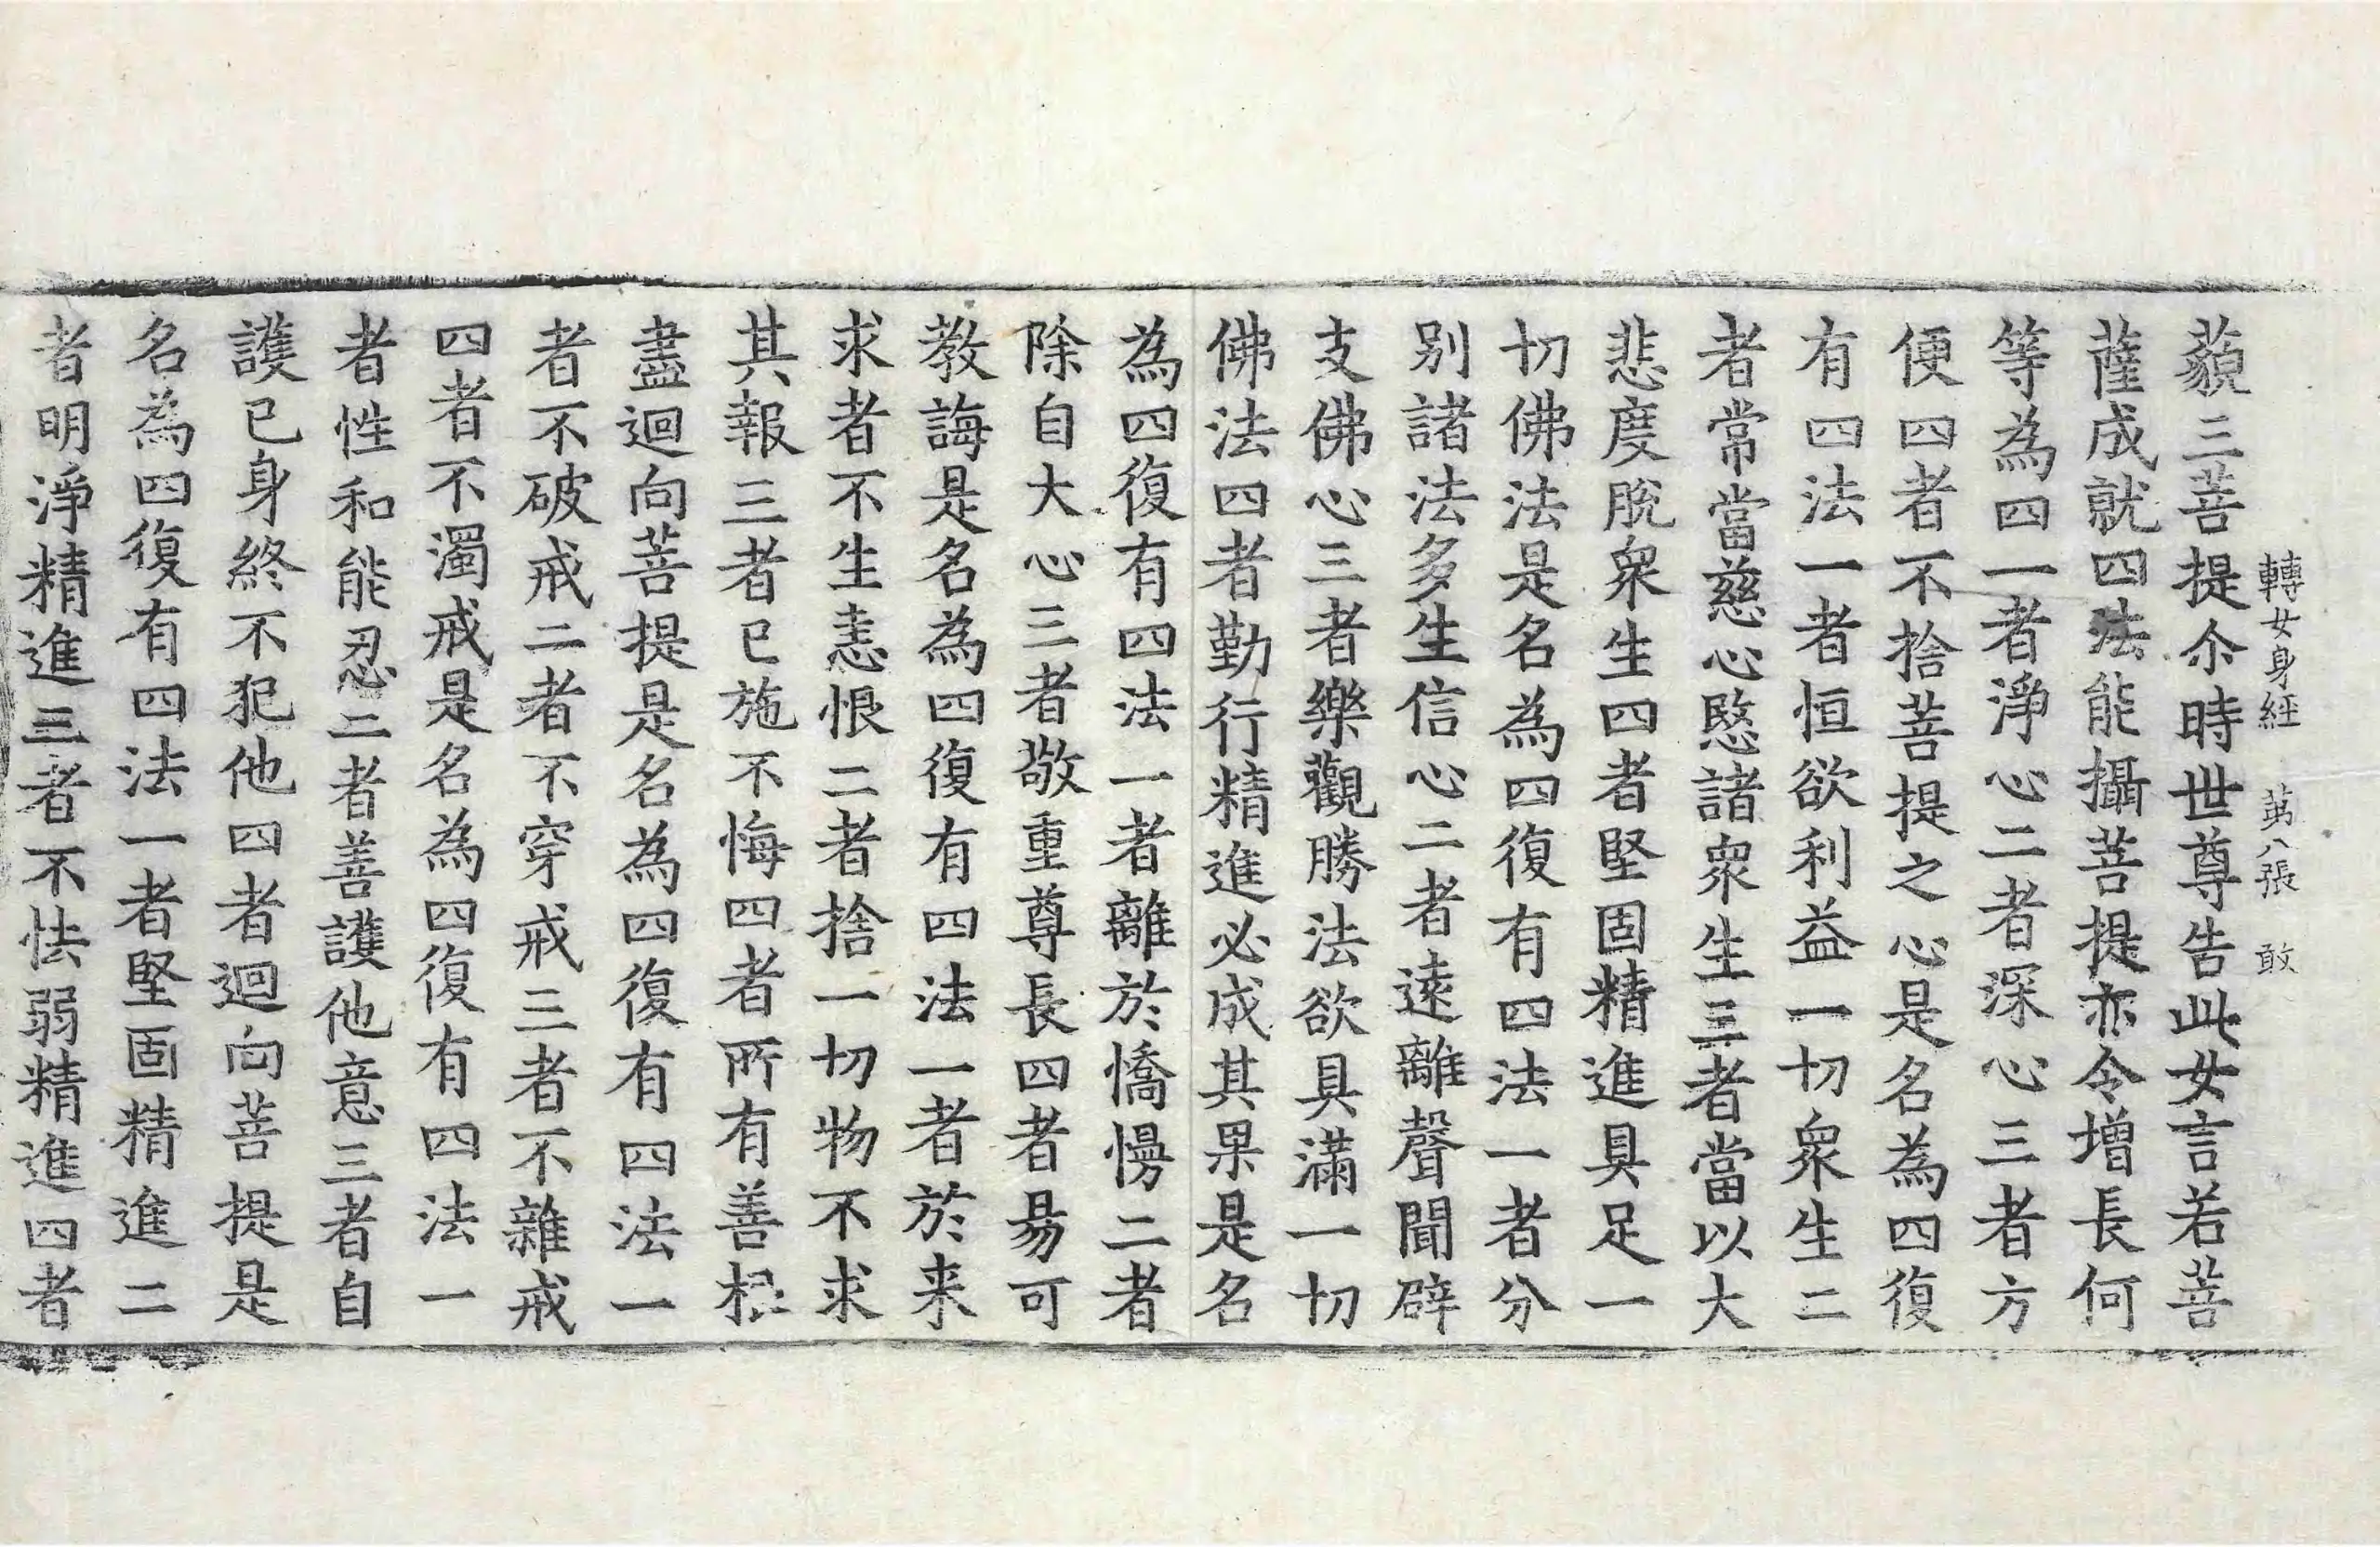 轉女身経 苐八張 敢
藐三菩提尒時世尊告此女言若菩
薩成就四法能攝菩提亦令增長何
等為四一者淨心二者深心三者方
便四者不捨菩提之心是名為四復
有四法一者恒欲利益一切衆生二
者常當慈心愍諸衆生三者當以大
悲度脫衆生四者堅固精進具足一
切佛法是名為四復有四法一者分
別諸法多生信心二者遠離聲聞辟
支佛心三者樂觀勝法欲具滿一切
佛法四者勤行精進必成其果是名
為四復有四法一者離於憍慢二者
除自大心三者敬重尊長四者易可
教誨是名為四復有四法一者於来
求者不生恚恨二者捨一切物不求
其報三者已施不悔四者所有善根
盡迴向菩提是名為四復有四法一
者不破戒二者不穿戒三者不雜戒
四者不濁戒是名為四復有四法一
者性和能忍二者善護他意三者自
護已身終不犯他四者迴向菩提是
名為四復有四法一者堅固精進二
者明淨精進三者不怯弱精進四者